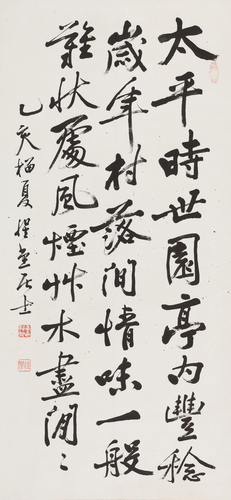 太平時世園亭内豐稔
歲年村落間情味一般
難狀處風煙艸木盡閒〻
乙亥榴夏居士